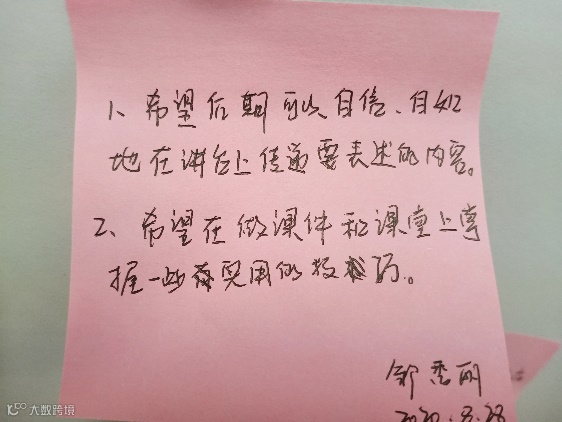 1、希望后期可以自信、自如
地在讲台上传递需表述的内容。
2、希望在做课件和课堂上掌
握一些实用的技巧。
邹秀丽
2020.8.28
大数跨境